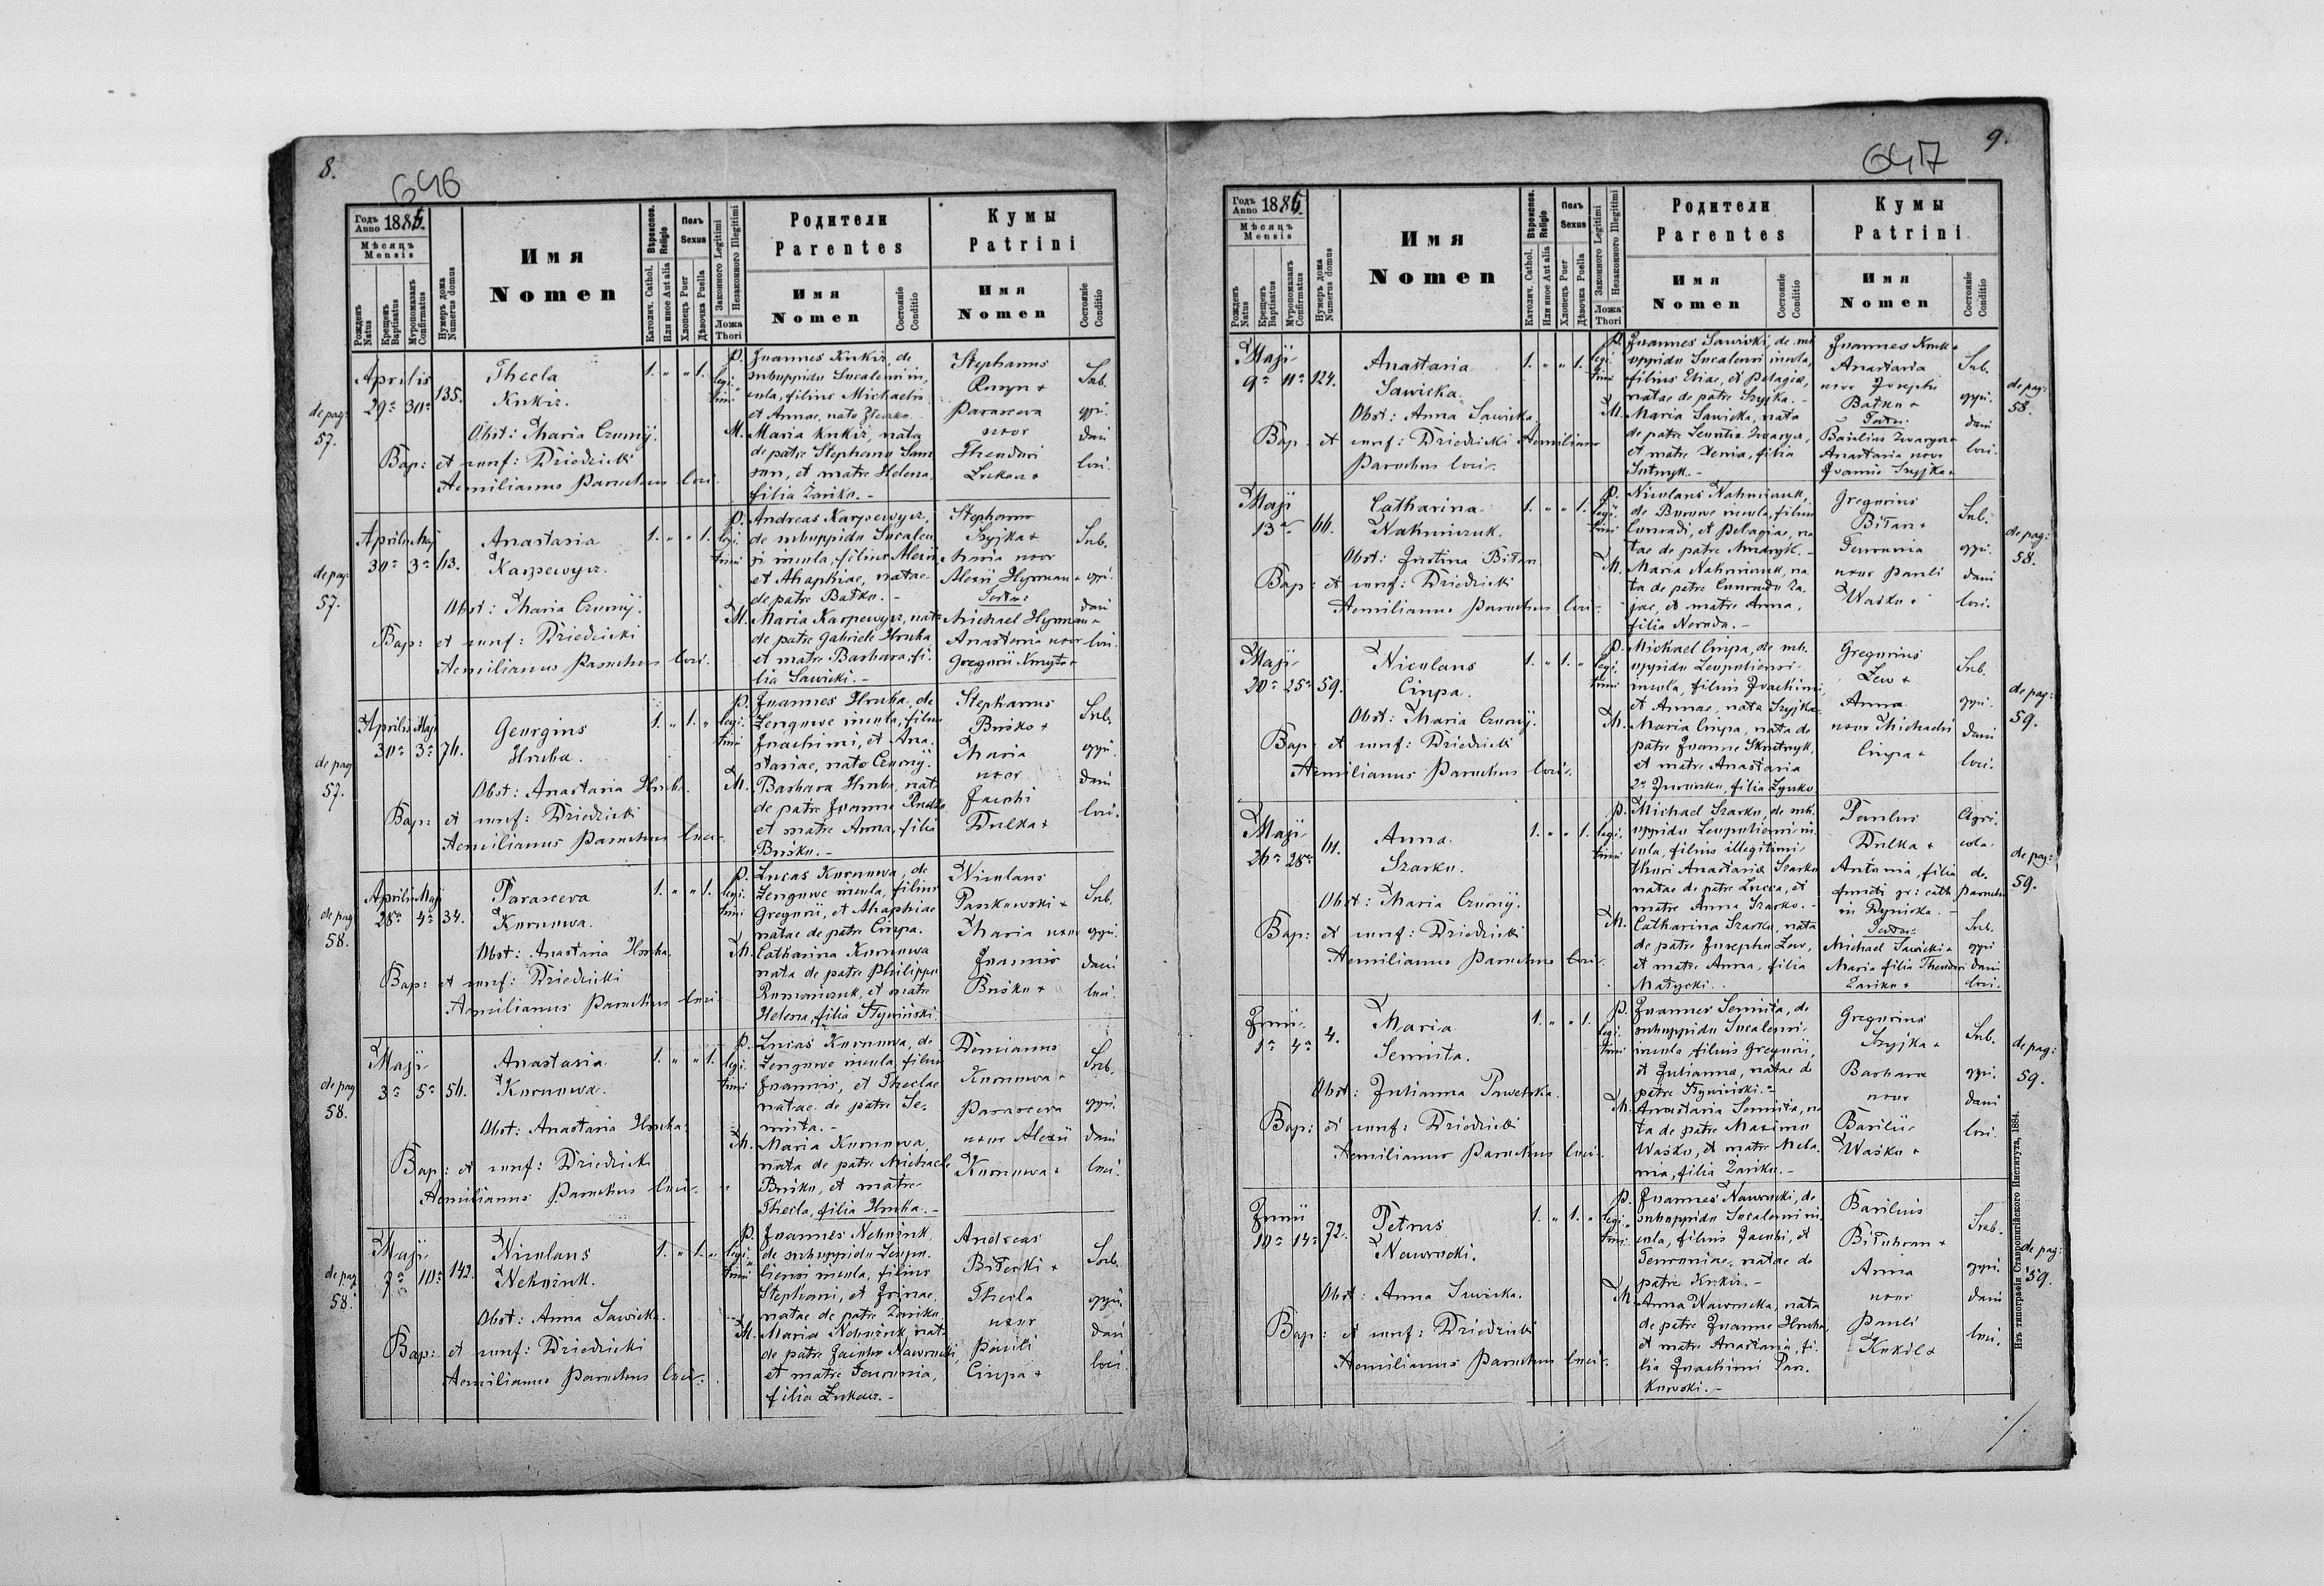 8.
646
Годъ
Anno 1885.
Мѣсяцъ
Mensis
Рожденъ
Natus
Крещенъ
Baptisatus
Муропомазанъ
Confirmatus
Нумеръ дома
Numerus domus
Имя
Nomen
Вѣроиспов.
Religio
Католич. Cathol.
Или иное Aut alia
Полъ
Sexus
Хлопецъ Puer
Дѣвочка Puella
Законного Legitimi
Незаконного Illegitimi
Ложа
Thori
Родители
Parentes
Имя
Nomen
Состояніе
Conditio
Кумы
Patrini
Имя
Nomen
Состояніе
Conditio
de pag:
57.
Aprilis
29a 30a 135.
Thecla
Kukiz.
Obst: Maria Czornÿ.
Bap: et conf: Dziedzicki
Aemilianus Parochus loci
1. " " 1.
legi-
timi
P. Joannes Kukiz, de
suboppido Socalensi in-
cola, filius Michaelis
et Annae, nata
M. Maria Kukiz, nata
de patre Stephano Sam
son, et matre Helena,
filia Zariko. -
Stephanus
+
Parasceva
uxor
Theodori
+
Sub.
oppi-
dani
loci.
de pag:
57.
Aprilis Maji
30a 3a 63.
Anastasia
Karpewycz.
Obst: Maria Czornÿ.
Bap: et conf: Dziedzicki
Aemilianus Parochus loci.
1. " " 1.
legi-
timi
P. Andreas Karpewycz,
de suboppido Socalen
si incola, filius Alexii
et Ahaphiae, natae
de patre Batko. -
M. Maria Karpewycz, nata
de patre Gabriele Hruba
et matre Barbara, fi-
lia Sawicki. -
Stephanus
Szyjka +
Maria uxor
Alexii Hyrman +
Testes:
Michael Hyrman +
Anastasia uxor
Gregorii Kmyta +
Sub.
oppi-
dani
loci.
de pag
57.
Aprilis Maji
30a 3a 76.
Georgius
Hruba.
Obst: Anastasia Hruba.
Bap: et conf: Dziedzicki
Aemilianus Parochus loci.
1. " 1. "
legi-
timi
P. Joannes Hruba, de
Zengowe incola, filius
Joachimi, et Ana-
stasiae, nata Czornÿ.
M. Barbara Hruba, nata
de patre Joanne Rudko
et matre Anna, filia
Busko. -
Stephanus
Busko +
Maria
uxor
Jacobi
Dulka +
Sub.
oppi-
dani
loci.
de pag
58.
Aprilis Maji
28a 4a 34.
Parasceva
Korunowa.
Obst: Anastasia Hruba.
Bap: et conf: Dziedzicki
Aemilianus Parochus loci.
1. " " 1.
legi-
timi
P. Lucas Korunowa, de
Zengowe incola, filius
Gregorii, et Ahaphiae
natae de patre Cinpa.
M. Catharina Korunowa
nata de patre Philippo
Romanczuk, et matre
Helena, filia
Nicolaus
Paskowski +
Maria uxor
Joannis
Busko +
Sub.
oppi-
dani
loci.
de pag
58.
Maji
3a 5a 56.
Anastasia
Korunowa.
Obst: Anastasia Hruba.
Bap: et conf: Dziedzicki
Aemilianus Parochus loci.
1. " " 1.
legi-
timi
P. Lucas Korunowa, de
Zengowe incola, filius
Joannis, et Theclae
natae de patre Se-
mita. -
M. Maria Korunowa,
nata de patre Michaele
Busko, et matre
Thecla, filia Hruba. -
Demianus
Korunowa +
Parasceva
uxor Alexii
Korunowa +
Sub.
oppi-
dani
loci.
de pag
58.
Maji
7a 10a 142.
Nicolaus
Nehożuk.
Obst: Anna Sawicka.
Bap: et conf: Dziedzicki
Aemilianus Parochus loci.
1. " 1. "
legi-
timi
P. Joannes Nehożuk,
de suboppido Leopo-
liensi incola, filius
Stephani, et Irinae
natae de patre Zariko.
M. Maria Nehożuk, nata
de patre Jacobo Nawrocki,
et matre Fewronia,
filia Lukasz. -
Andreas
Bilecki +
Thecla
uxor
Pauli
Cinpa +
Sub.
oppi-
dani
loci
9.
647
Годъ
Anno 1885.
Мѣсяцъ
Mensis
Рожденъ
Natus
Крещенъ
Baptisatus
Муропомазанъ
Confirmatus
Нумеръ дома
Numerus domus
Имя
Nomen
Вѣроиспов.
Religio
Католич. Cathol.
Или иное Aut alia
Полъ
Sexus
Хлопецъ Puer
Дѣвочка Puella
Законного Legitimi
Незаконного Illegitimi
Ложа
Thori
Родители
Parentes
Имя
Nomen
Состояніе
Conditio
Кумы
Patrini
Имя
Nomen
Состояніе
Conditio
Maji
9a 11a 124.
Anastasia
Sawicka.
Obst: Anna Sawicka.
Bap: et conf: Dziedzicki Aemilianus
Parochus loci.
1. " " 1.
legi-
timi
P. Joannes Sawicki, de sub
oppido Socalensi incola,
filius Eliae, et Pelagiae,
natae de patre Szyjka. -
M. Maria Sawicka, nata
de patre Leontio Zwarycz,
et matre Xenia, filia
Sutnyk. -
Joannes Kmk +
Anastasia
uxor Josephi
Batko +
Testes:
Basilius Zwarycz +
Anastasia uxor
Joannis Szyjka +
Sub.
oppi-
dani
loci.
de pag:
58.
Maji
13a 66.
Catharina
Nahniczuk.
Obst: Justina Bilan.
Bap: et conf: Dziedzicki
Aemilianus Parochus loci.
1. " " 1.
legi-
timi
P. Nicolaus Nahniczuk,
de Borowe incola, filius
Conradi, et Pelagiae, na
tae de patre Andryk. -
M. Maria Nahniczuk, na
ta de patre Conrado Za-
jac, et matre Anna,
filia Neroda. -
Gregorius
Bilan +
Fewronia
uxor Pauli
Waśko +
Sub.
oppi-
dani
loci.
de pag:
58.
Maji
20a 25a 59.
Nicolaus
Cinpa.
Obst: Maria Czornÿ.
Bap: et conf: Dziedzicki
Aemilianus Parochus loci.
1. " 1. "
legi-
timi
P. Michael Cinpa, de sub-
oppido Leopoliensi
incola, filius Joachimi,
et Annae, nata Szyjka.
M. Maria Cinpa, nata de
patre Joanne Skrutnyk,
et matre Anastasia
filia Zynko
Gregorius
Lew +
Anna
uxor Michaelis
Cinpa +
Sub.
oppi-
dani
loci.
de pag:
59.
Maji
26a 28a 61.
Anna
Szarko.
Obst: Maria Czornÿ.
Bap: et conf: Dziedzicki
Aemilianus Parochus loci.
1. " " 1.
legi-
timi
P. Michael Szarko, de sub-
oppido Leopoliensi in-
cola, filius illegitimi
thori Anastasiae Szarko
natae de patre Lucca, et
matre Anna Szarko. -
M. Catharina Szarko, nata
de patre Josepho Lew,
et matre Anna, filia
Matycki.
Paulus
Dulka +
Antonia, filia
functi gr: cath.
in Dyniska. -
Testes:
Michael Sawicki +
Maria filia Theodori
Zariko +
Agri-
cola.
de
parochi
Sub.
oppi
dani
loci.
de pag:
59.
Junii
1a 4a 4.
Maria
Semita.
Obst: Julianna Pawelska.
Bap: et conf: Dziedzicki
Aemilianus Parochus loci.
1. " " 1.
legi-
timi
P. Joannes Semita, de
suboppido Socalensi
incola, filius Gregorii,
et Juliannae, natae de
patre
M. Anastasia Semita, na
ta de patre Maximo
Waśko, et matre Mela-
nia, filia Zariko. -
Gregorius
Szyjka +
Barbara
uxor
Basilii
Waśko +
Sub.
oppi-
dani
loci.
de pag:
59.
Junii
10a 14a 72.
Petrus
Nawrocki.
Obst: Anna Sawicka.
Bap: et conf: Dziedzicki
Aemilianus Parochus loci.
1. " 1. "
legi-
timi
P. Joannes Nawrocki, de
suboppido Socalensi in-
cola, filius Jacobi, et
Fewroniae, natae de
patre Kukiz. -
M. Anna Nawrocka, nata
de patre Joanne Hruba,
et matre Anastasia, fi-
lia Joachimi Pas-
kowski. -
Basilius
Bilohran +
Anna
uxor
Pauli
Kukil +
Sub.
oppi-
dani
loci.
de pag:
59.
Изъ типографіи Ставропигійского Института, 1884.